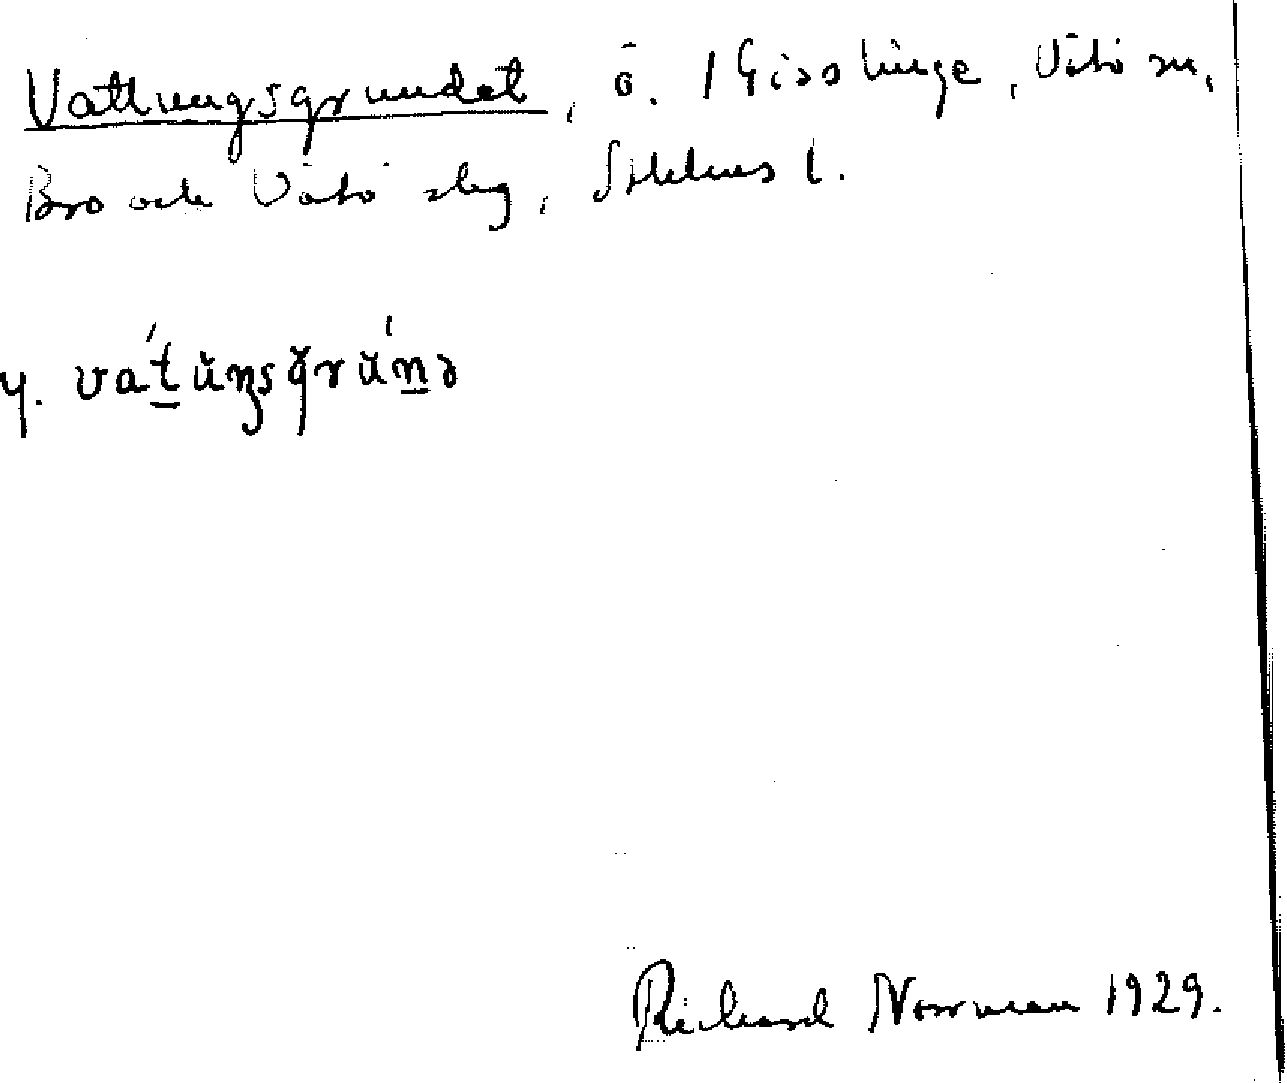 Vattungsgrundet, ö. / Gisslinge, Vätö sn,
Bro och Vätö slg, Sthlms l.
y. va´tŭŋsgrŭ´nə
Richard Norrman 1929.